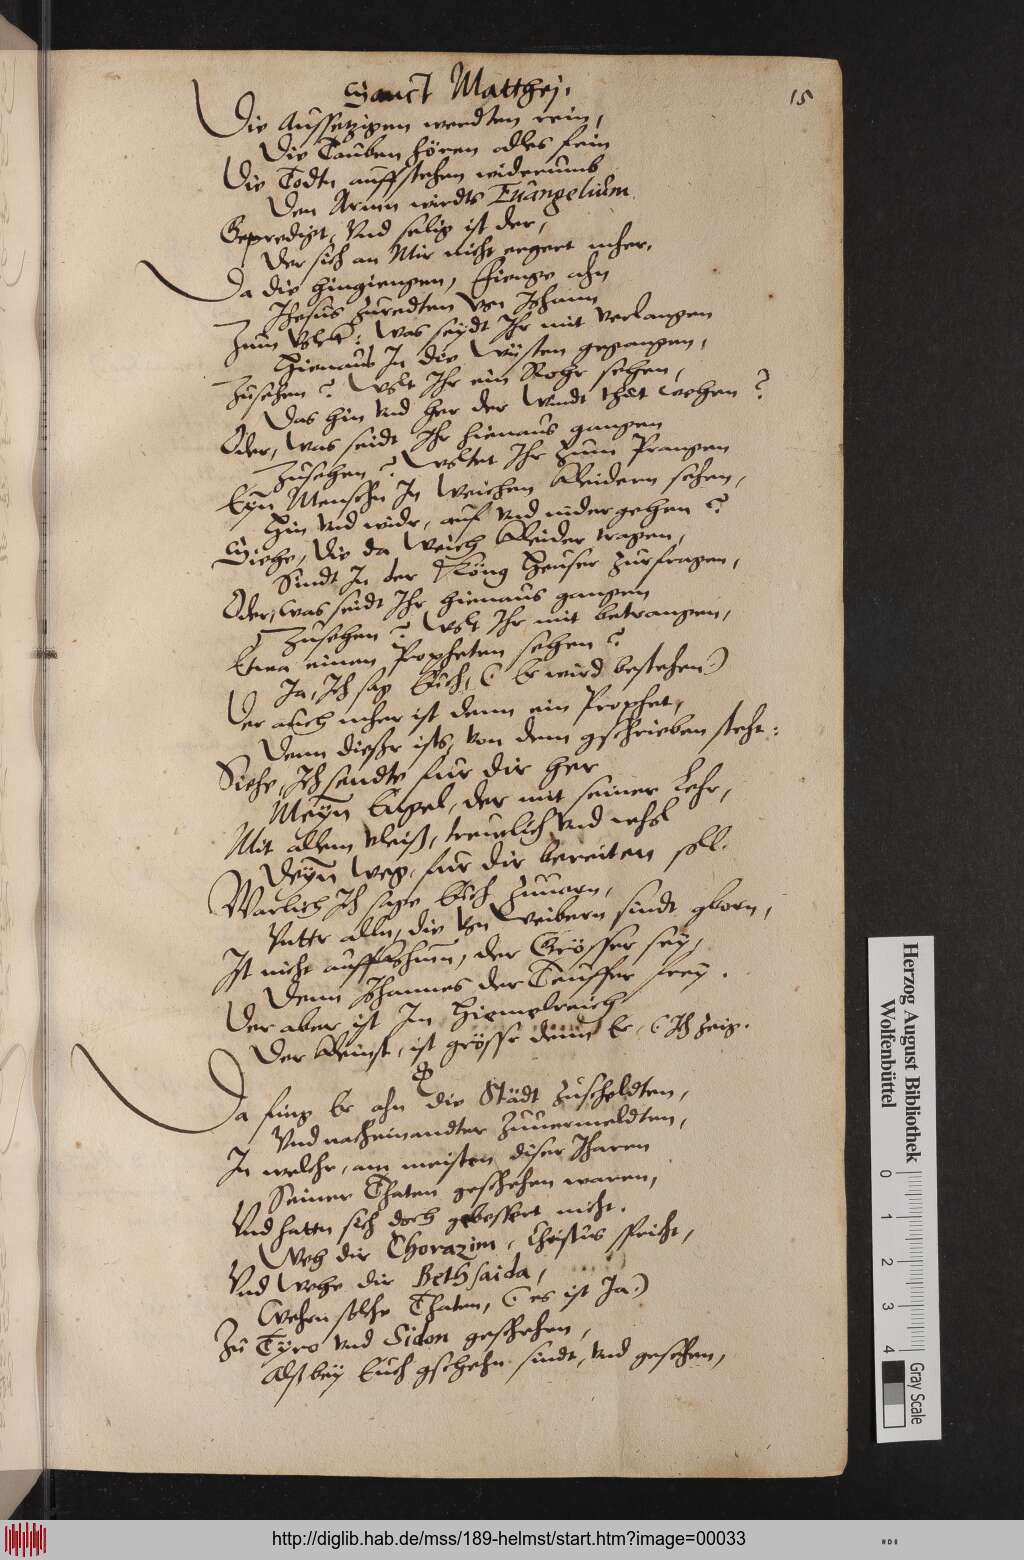 Sanct Matthej.
15
Die Aussetzigen werdten rein,
Die Tauben hören alles fein
Die Todtn auffstehen widerumb
Den Armn wirdts Euangelium
Gepredigt, Vnd selig ist der,
Der sich an Mir nicht ergert mher.
Da die hingiengen, fienge ahn
Jhesus zuredten von Johann
Zum Volck: Was seydt Ihr mit verlangen
Hienaus In die Wüsten gegangen,
Zusehen? Wolt Ihr ein Rohr sehen,
Das hin vnd her der Windt thät wehen?
Oder, Was seidt Ihr hienaus gangen
Zusehen? Woltet Ihr zum Prangen
Eyn Menschn In Weichen Kleidern sehen,
Hin vnd widr, auf vnd nider gehen?
Siehe, Die da Weich Kleider tragen,
Sindt In der König Heuser zurfragen,
Oder, was seidt Ihr hienaus gangen
Zusehen? Wolt Ihr mit betrangen,
Etwa einen Propheten sehen?
Ja, Ich sag Euch, (Er wird bestehen)
Der auch mher ist denn ein Prophet,
Denn dießer ists, von dem gschrieben steht:
Siehe, Ich sendte fur dir her
Meyn Engel, der mit seiner Lehr,
Mit allem vleiß, treulich vnd wohl
Deyn Weg, fur dir bereiten soll.
Warlich Ich sage Euch zuuorn,
Vnttr alln, die von Weibern sindt gborn,
Ist nicht auffkhumn, der Grösser sey,
Denn Johannes der Teuffer frey.
Der aber ist Im Himmelreich
Der Kleinst, ist grösser denn Er, Ich zeig.
Da fing Er ahn die Städt zuscheldten,
Vnd nacheinandter zuuermeldten,
In welchr, am meisten diser Jharen
Seiner Thaten geschehen waren,
Vnd hattn sich doch gebessert nicht.
Weh dir Chorazim, Christus spricht,
Vnd Wehe dir Bethsaida,
Wehrn solche Thaten, (es ist Ja)
Zu Tyro vnd Sidon geschehen,
Alß bey Euch gschehn sindt, vnd gesehen,
Herzog August Bibliothek
Wolfenbüttel
0 1 2 3 4
Gray Scale
http://diglib.hab.de/mss/189-helmst/start.htm?image=00033